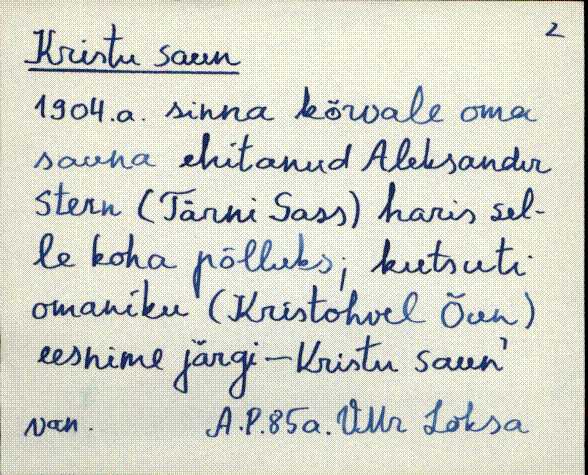 2
Kristu saun
1904.a. sinna kõrvale oma
sauna ehitanud Aleksandr
Stern (Tärni Sass) haris sel-
le koha põlluks; kutsuti
omaniku (Kristohvel Õun)
eesnime järgi – Kristu saun'
van. A.P. 85a. VMr Loksa